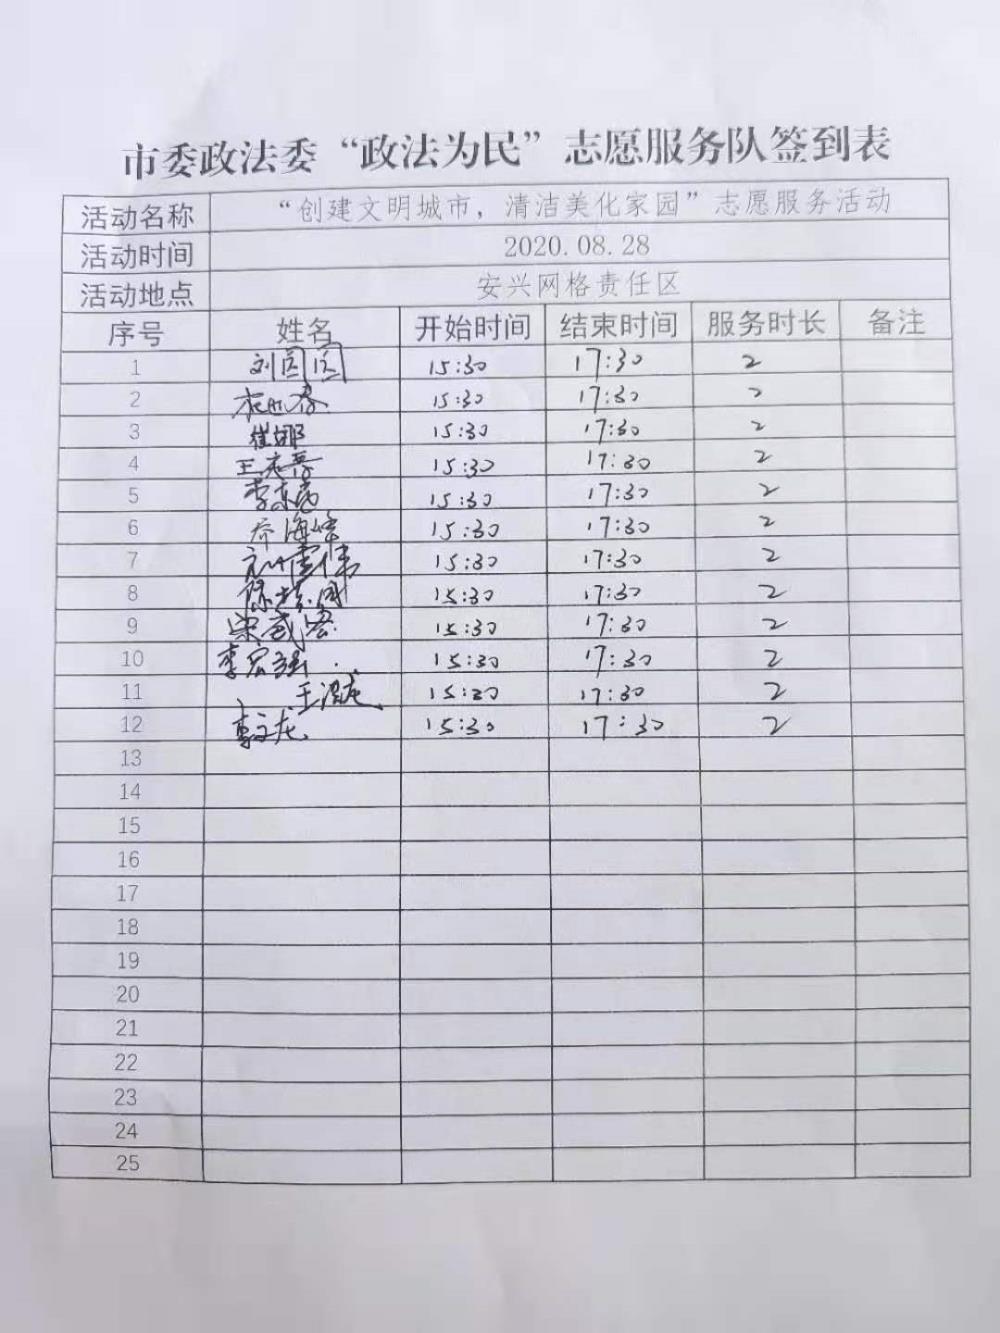 市委政法委“政法为民”志愿服务队签到表
活动名称 “创建文明城市，清洁美化家园”志愿服务活动
活动时间 2020.08.28
活动地点 安兴网格责任区
序号 姓名 开始时间 结束时间 服务时长 备注
1 刘园园 15:30 17:30 2
2 15:30 17:30 2
3 崔娜 15:30 17:30 2
4 王志 15:30 17:30 2
5 李 15:30 17:30 2
6 乔海峰 15:30 17:30 2
7 伟 15:30 17:30 2
8 15:30 17:30 2
9 宋 15:30 17:30 2
10 李宏强 15:30 17:30 2
11 王 15:30 17:30 2
12 李文龙 15:30 17:30 2
13
14
15
16
17
18
19
20
21
22
23
24
25